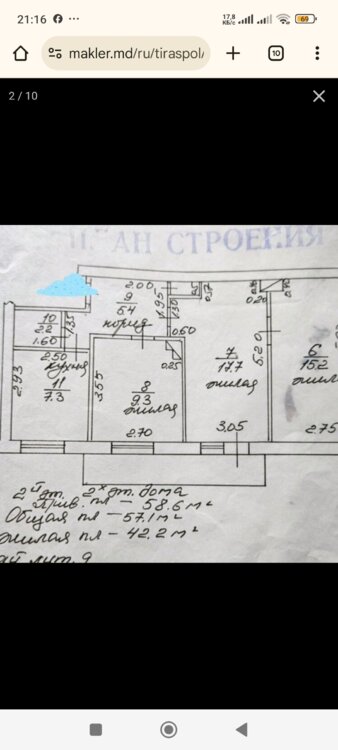 21:16
17,8
КБ/с
69
makler.md/ru/tiraspol/
10
2 / 10
ПЛАН СТРОЕНИЯ
2.00
9
5.4
коридор
1.95
1.30
0.60
10
2.2
1.60
1.35
2.50
кухня
11
7.3
2.93
3.55
8
9.3
жилая
0.25
2.70
7
17.7
жилая
0.20
5.20
3.05
6
15.2
жила
2.75
2й эт. 2х эт. дома
Прив. пл - 58.6 м²
Общая пл - 57.1 м²
жилая пл - 42.2 м²
лит. 9